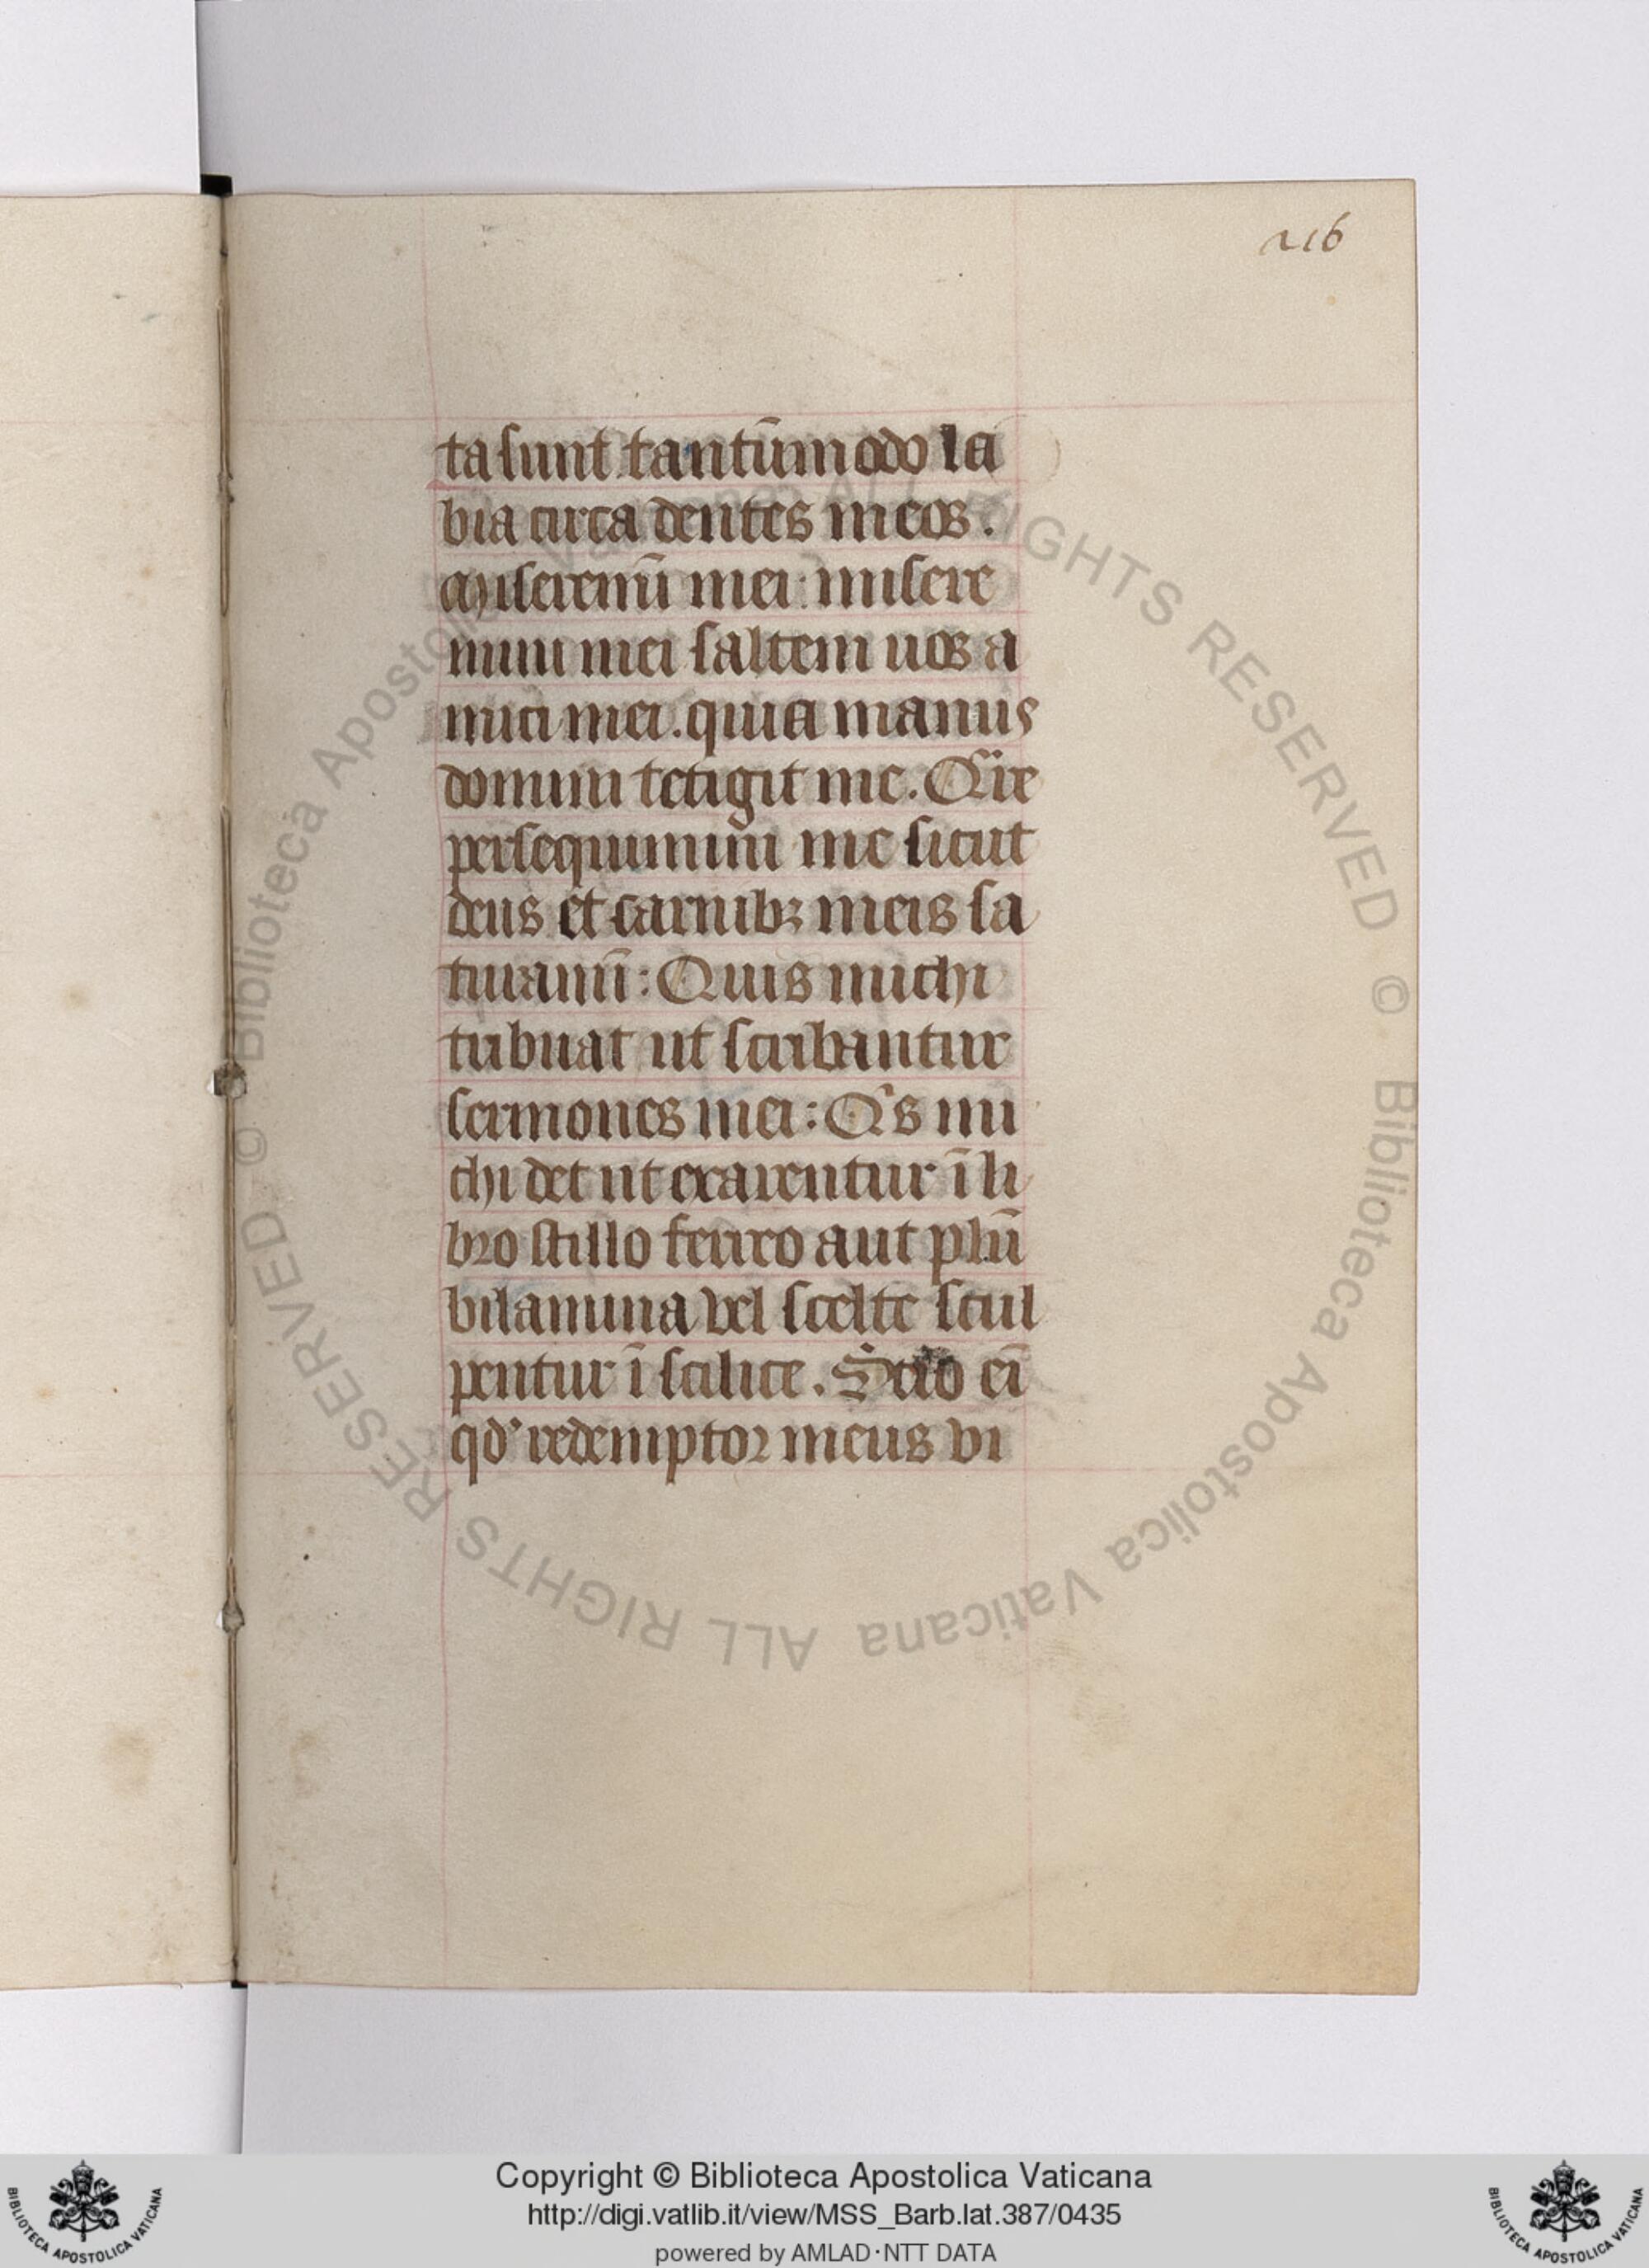 216
ta sunt tantūmodo la
bia circa dentes meos.
Miseremī mei: misere
mini mei saltem uos a
mici mei. quia manus
domini tetigit me. Qͣre
persequimini me sicut
deus et carnibꝫ meis sa
turamī: Quis michi
tribuat ut scribantur
sermones mei: Qͥs mi
chi det ut exarentur ī li
bro stillo ferreo aut plū
bi lamina vel scelte scul
pentur ī scilice. Scio eī
qd' redemptor meus vi
© Biblioteca Apostolica Vaticana ALL RIGHTS RESERVED © Biblioteca Apostolica Vaticana ALL RIGHTS RESERVED
BIBLIOTECA APOSTOLICA VATICANA
Copyright © Biblioteca Apostolica Vaticana
http://digi.vatlib.it/view/MSS_Barb.lat.387/0435
powered by AMLAD·NTT DATA
BIBLIOTECA APOSTOLICA VATICANA